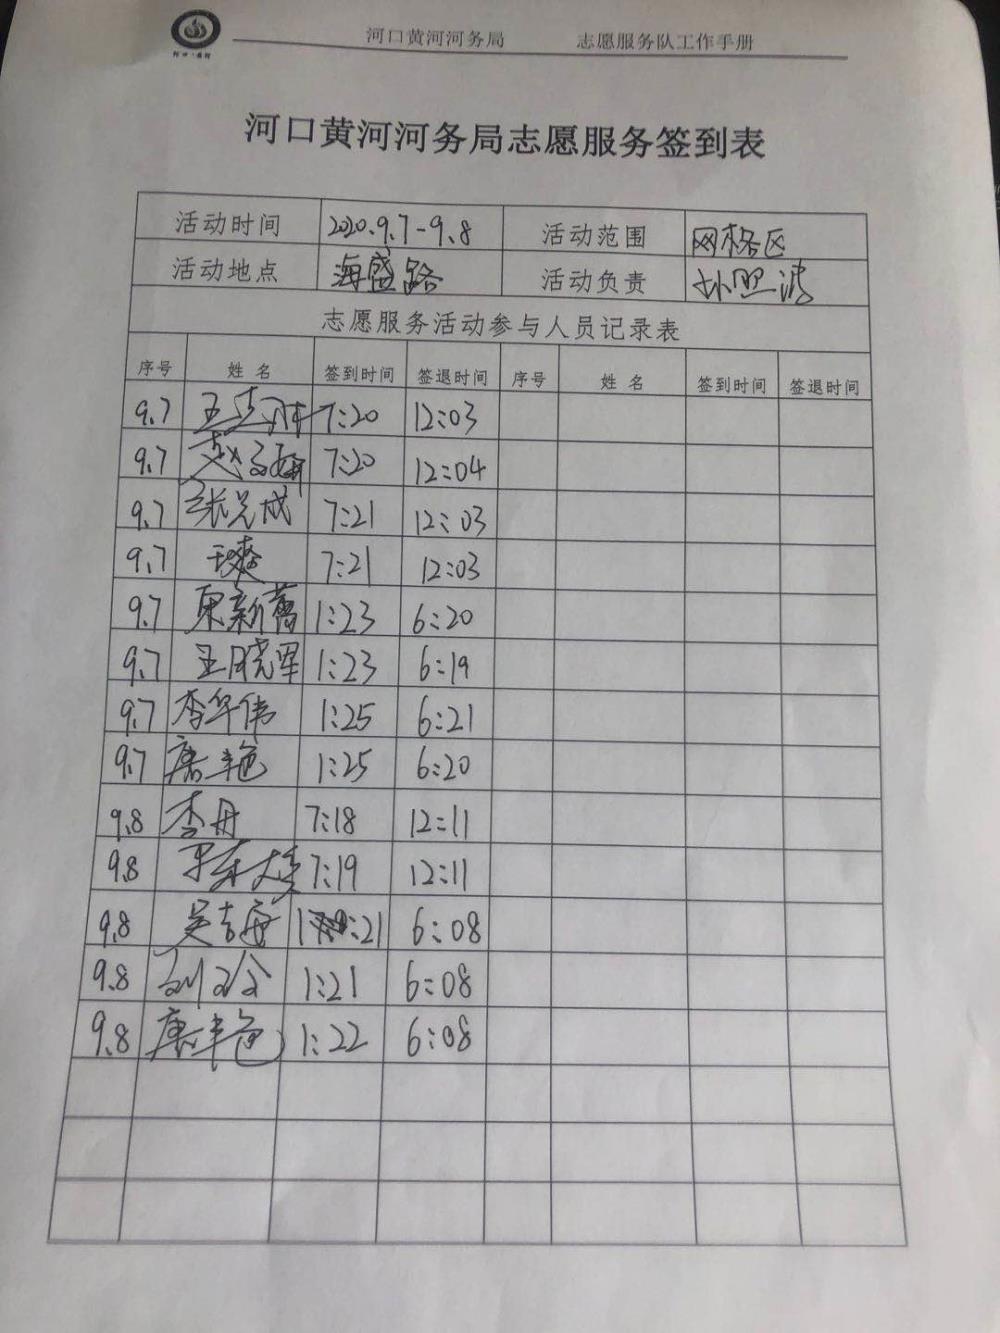 河口黄河河务局 志愿服务队工作手册
河口黄河河务局志愿服务签到表
活动时间 2020.9.7-9.8 活动范围 网格区
活动地点 海盛路 活动负责 孙照涛
志愿服务活动参与人员记录表
序号 姓名 签到时间 签退时间 序号 姓名 签到时间 签退时间
9.7 7:20 12:03
9.7 赵 7:20 12:04
9.7 张 成 7:21 12:03
9.7 7:21 12:03
9.7 新 1:23 6:20
9.7 王晓军 1:23 6:19
9.7 李华伟 1:25 6:21
9.7 唐艳 1:25 6:20
9.8 李丹 7:18 12:11
9.8 7:19 12:11
9.8 吴吉 1:21 6:08
9.8 刘 1:21 6:08
9.8 唐艳 1:22 6:08